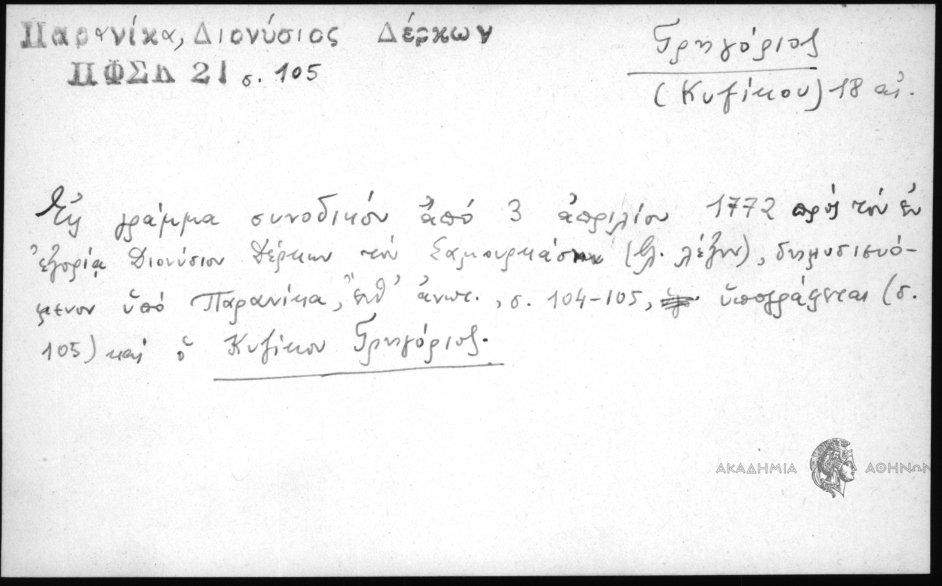 Παρανίκα, Διονύσιος Δέρκων
ΠΦΣΚ 21 σ. 105
Γρηγόριος
(Κυζίκου) 18 αἰ.
Εἰς γράμμα συνοδικόν ἀπό 3 ἀπριλίου 1772 πρός τόν ἐν
ἐξορίᾳ Διονύσιον Δέρκων τόν Σαμουρκάση (βλ. λέξιν), δημοσιευό-
μενον ὑπό Παρανίκα, ἔνθ' ἀνωτ., σ. 104-105, ὑπογράφεται (σ.
105) καί ὁ Κυζίκου Γρηγόριος.
ΑΚΑΔΗΜΙΑ ΑΘΗΝΩΝ